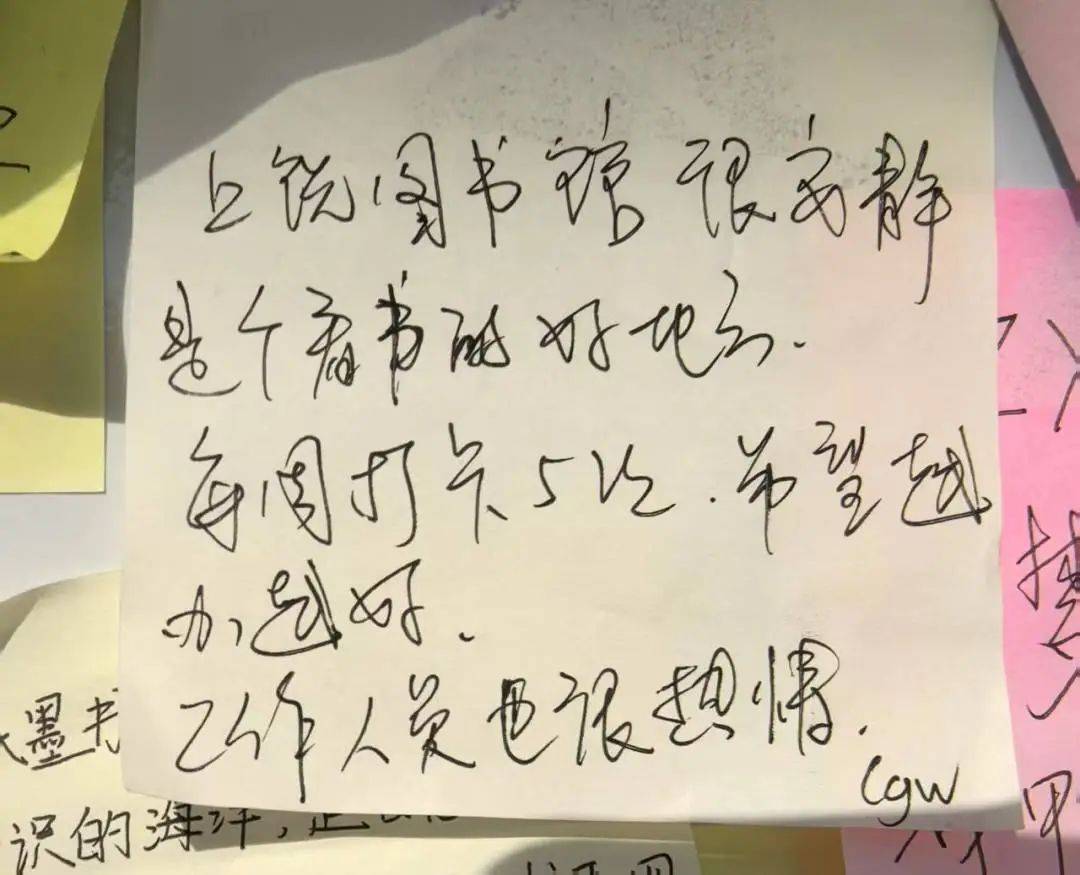 上饶图书馆很安静
是个看书的好地方.
每周打卡5次.希望越
办越好.
工作人员也很热情.
cgw
墨书
识的海洋,